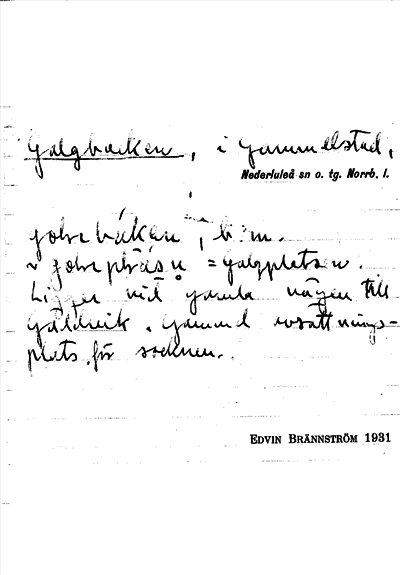 Galgbacken, i Gammelstad,
Nederluleå sn o. tg. Norrb. l.
b. m.
= galgplatsen.
Ligger vid gamla vägen till
Gäddvik. Gammal avrättnings-
plats för socknen.
EDVIN BRÄNNSTRÖM 1931